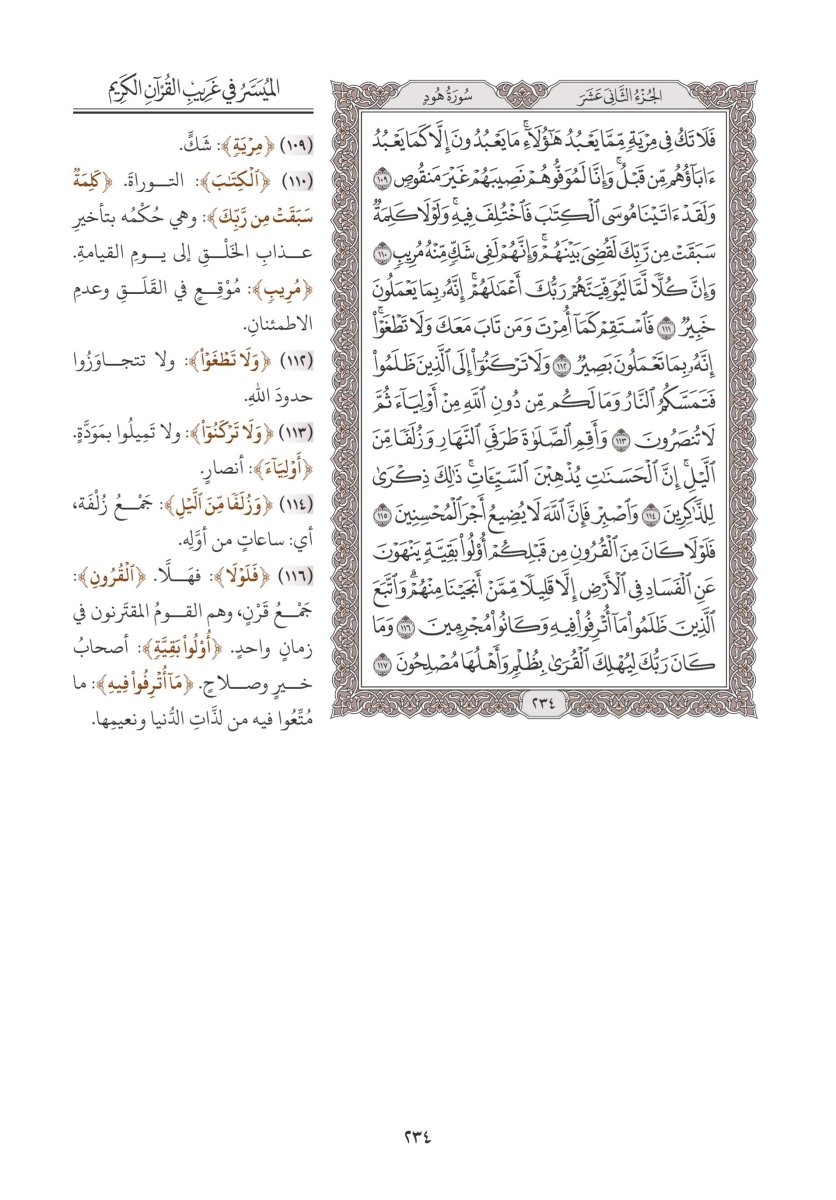 الجُزْءُ الثَّانِى عَشَرَ
سُورَةُ هُودٍ
فَلَا تَكُ فِى مِرْيَةٍ مِّمَّا يَعْبُدُ هَٰٓؤُلَآءِۚ مَا يَعْبُدُونَ إِلَّا كَمَا يَعْبُدُ
ءَابَآؤُهُم مِّن قَبْلُۚ وَإِنَّا لَمُوَفُّوهُمْ نَصِيبَهُمْ غَيْرَ مَنقُوصٍ ١٠٩
وَلَقَدْ ءَاتَيْنَا مُوسَى ٱلْكِتَٰبَ فَٱخْتُلِفَ فِيهِۚ وَلَوْلَا كَلِمَةٌ
سَبَقَتْ مِن رَّبِّكَ لَقُضِىَ بَيْنَهُمْۚ وَإِنَّهُمْ لَفِى شَكٍّ مِّنْهُ مُرِيبٍ ١١٠
وَإِنَّ كُلًّا لَّمَّا لَيُوَفِّيَنَّهُمْ رَبُّكَ أَعْمَٰلَهُمْۚ إِنَّهُۥ بِمَا يَعْمَلُونَ
خَبِيرٌ ١١١ فَٱسْتَقِمْ كَمَآ أُمِرْتَ وَمَن تَابَ مَعَكَ وَلَا تَطْغَوْا۟ۚ
إِنَّهُۥ بِمَا تَعْمَلُونَ بَصِيرٌ ١١٢ وَلَا تَرْكَنُوٓا۟ إِلَى ٱلَّذِينَ ظَلَمُوا۟
فَتَمَسَّكُمُ ٱلنَّارُ وَمَا لَكُم مِّن دُونِ ٱللَّهِ مِنْ أَوْلِيَآءَ ثُمَّ
لَا تُنصَرُونَ ١١٣ وَأَقِمِ ٱلصَّلَوٰةَ طَرَفَىِ ٱلنَّهَارِ وَزُلَفًا مِّنَ
ٱلَّيْلِۚ إِنَّ ٱلْحَسَنَٰتِ يُذْهِبْنَ ٱلسَّيِّـَٔاتِۚ ذَٰلِكَ ذِكْرَىٰ
لِلذَّٰكِرِينَ ١١٤ وَٱصْبِرْ فَإِنَّ ٱللَّهَ لَا يُضِيعُ أَجْرَ ٱلْمُحْسِنِينَ ١١٥
فَلَوْلَا كَانَ مِنَ ٱلْقُرُونِ مِن قَبْلِكُمْ أُو۟لُوا۟ بَقِيَّةٍ يَنْهَوْنَ
عَنِ ٱلْفَسَادِ فِى ٱلْأَرْضِ إِلَّا قَلِيلًا مِّمَّنْ أَنجَيْنَا مِنْهُمْۗ وَٱتَّبَعَ
ٱلَّذِينَ ظَلَمُوا۟ مَآ أُتْرِفُوا۟ فِيهِ وَكَانُوا۟ مُجْرِمِينَ ١١٦ وَمَا
كَانَ رَبُّكَ لِيُهْلِكَ ٱلْقُرَىٰ بِظُلْمٍ وَأَهْلُهَا مُصْلِحُونَ ١١٧
٢٣٤
المُيَسَّرُ في غَرِيبِ القُرْآنِ الكَرِيمِ
(١٠٩) ﴿مِرْيَةٍ﴾: شَكٍّ.
(١١٠) ﴿ٱلْكِتَٰبَ﴾: التوراةَ. ﴿كَلِمَةٌ
سَبَقَتْ مِن رَّبِّكَ﴾: وهي حُكْمُه بتأخيرِ
عذابِ الخَلْقِ إلى يومِ القيامةِ.
﴿مُرِيبٍ﴾: مُوْقِعٍ في القَلَقِ وعدمِ
الاطمئنانِ.
(١١٢) ﴿وَلَا تَطْغَوْا۟﴾: ولا تتجاوَزُوا
حدودَ اللهِ.
(١١٣) ﴿وَلَا تَرْكَنُوٓا۟﴾: ولا تَمِيلُوا بمَوَدَّةٍ.
﴿أَوْلِيَآءَ﴾: أنصارٍ.
(١١٤) ﴿وَزُلَفًا مِّنَ ٱلَّيْلِ﴾: جَمْعُ زُلْفَة،
أي: ساعاتٍ من أوَّلِه.
(١١٦) ﴿فَلَوْلَا﴾: فهَلَّا. ﴿ٱلْقُرُونِ﴾:
جَمْعُ قَرْنٍ، وهم القومُ المقتَرنون في
زمانٍ واحدٍ. ﴿أُو۟لُوا۟ بَقِيَّةٍ﴾: أصحابُ
خيرٍ وصلاحٍ. ﴿مَآ أُتْرِفُوا۟ فِيهِ﴾: ما
مُتِّعُوا فيه من لذَّاتِ الدُّنيا ونعيمِها.
٢٣٤